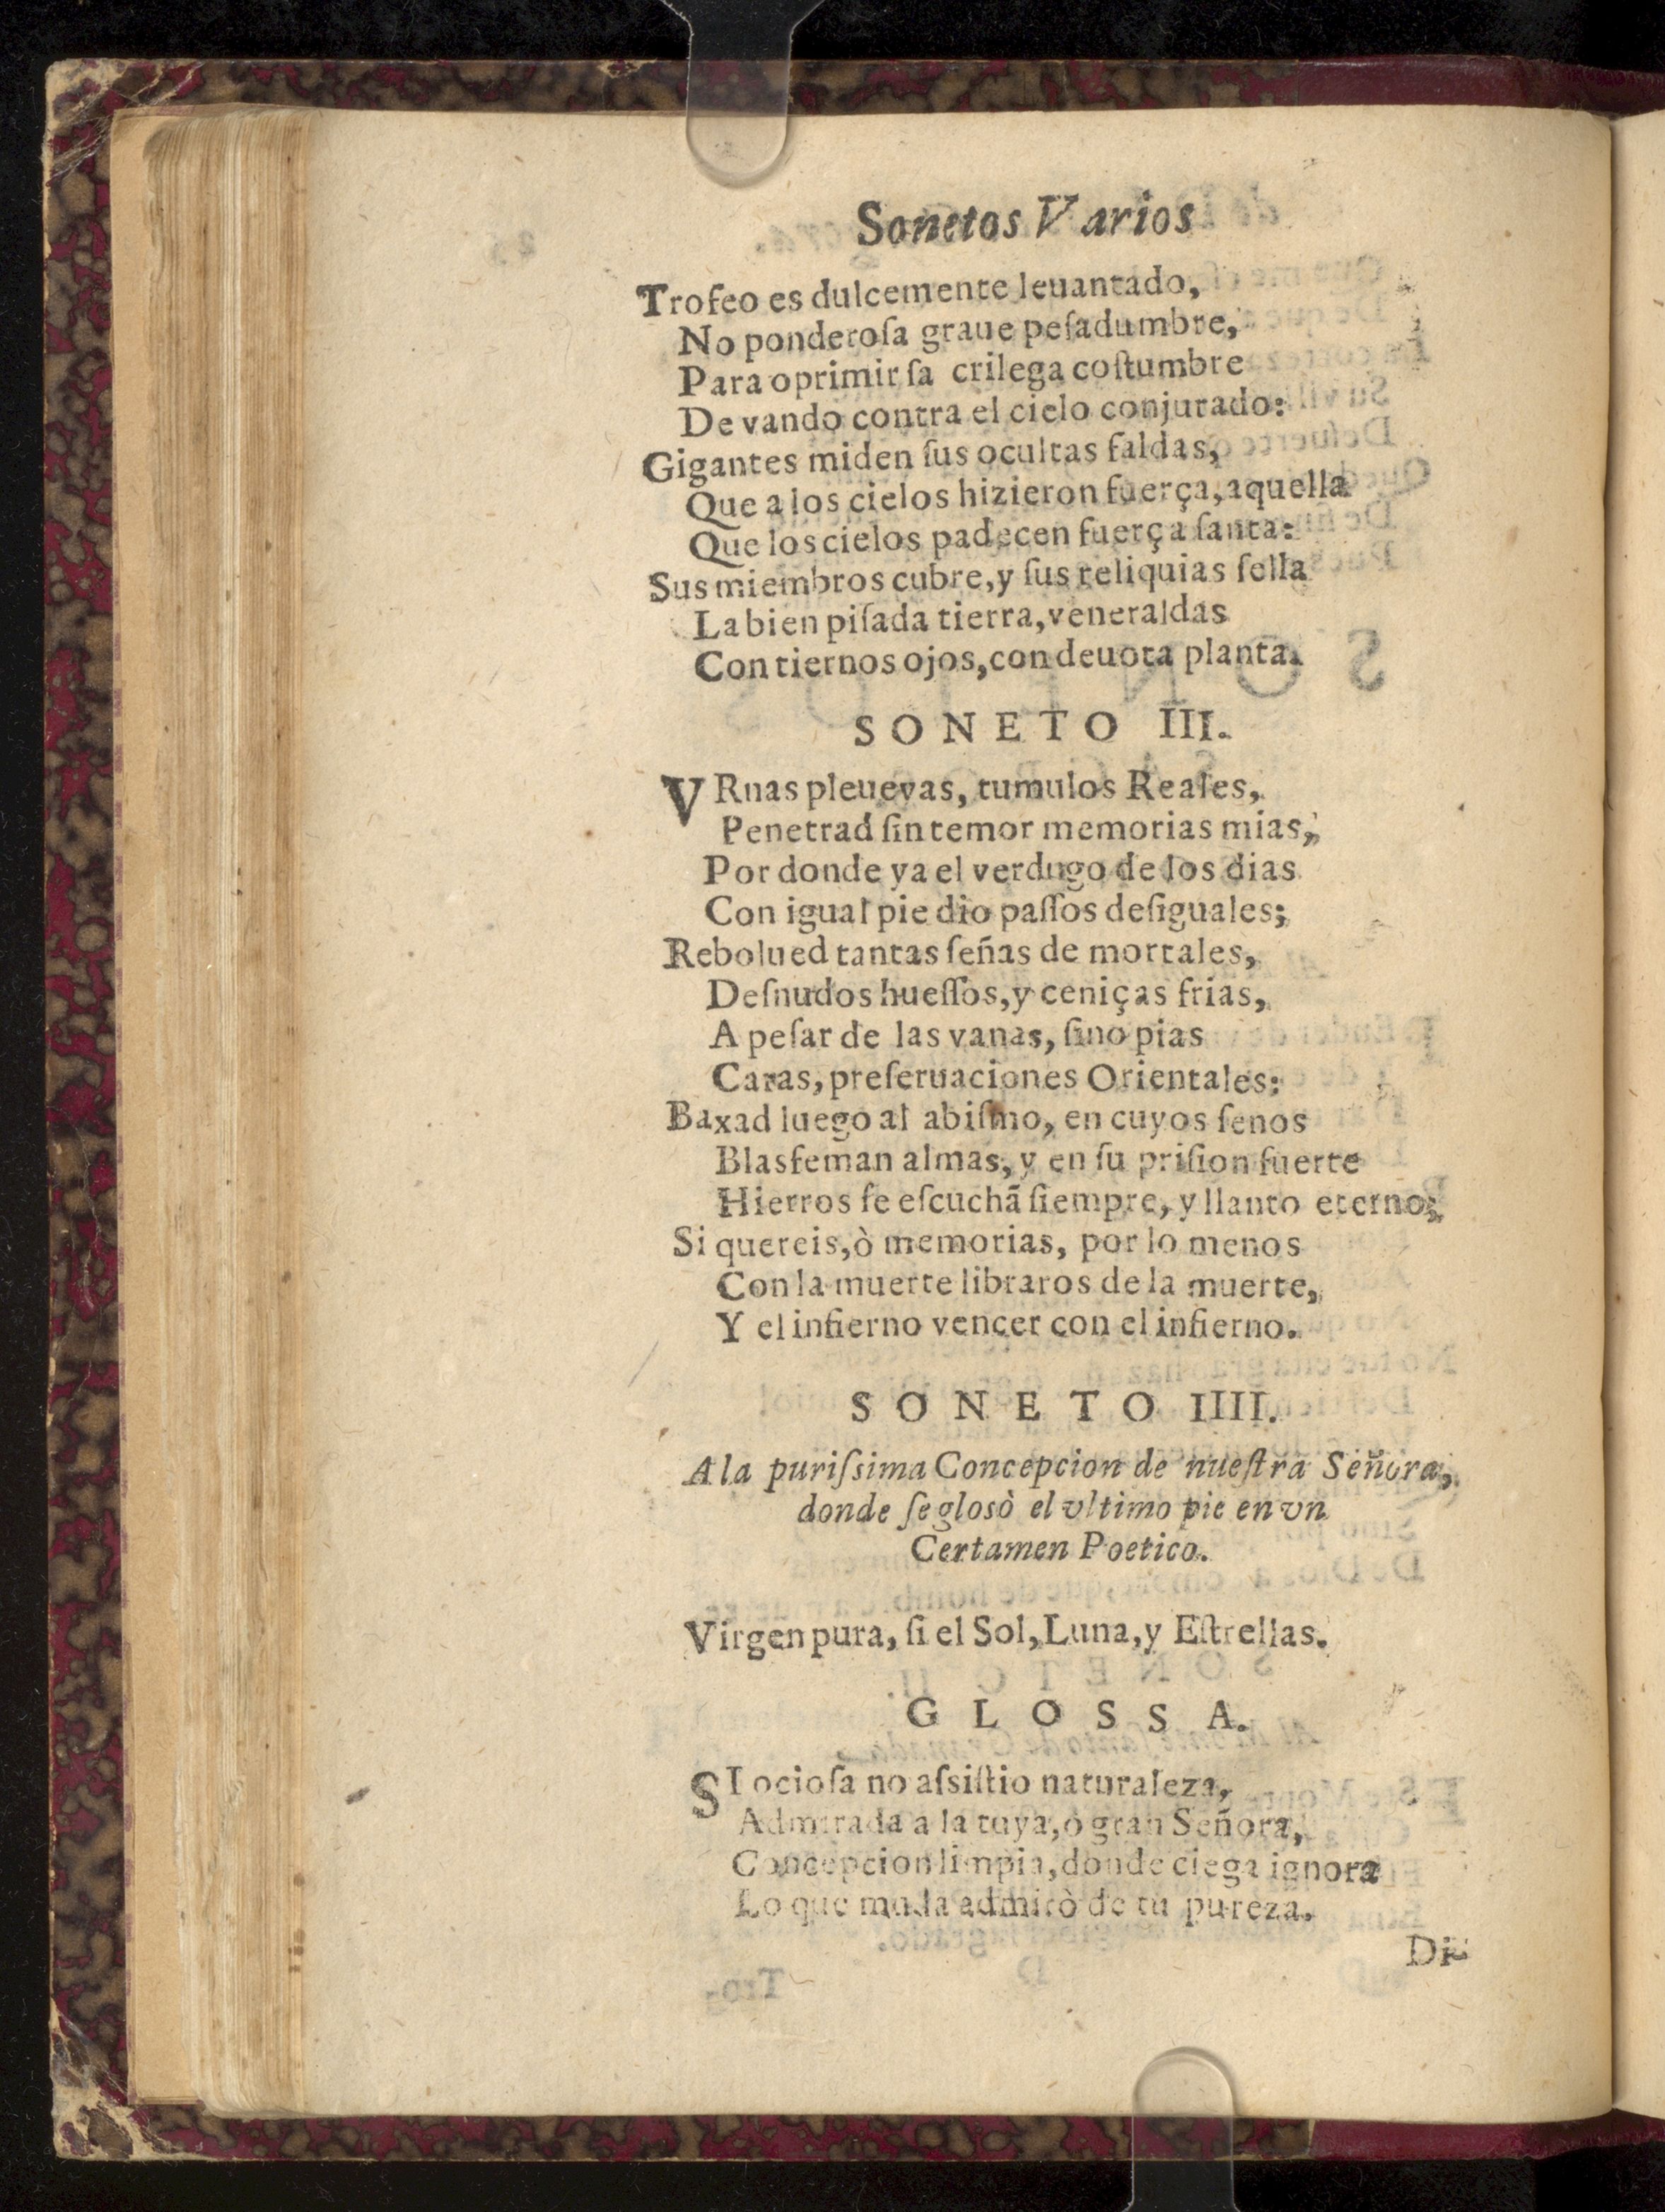 Sonetos Varios
Trofeo es dulcemente leuantado,
No ponderoſa graue peſadumbre,
Para oprimir ſa crilega coſtumbre
De vando contra el cielo conjurado:
Gigantes miden ſus ocultas faldas,
Que a los cielos hizieron fuerça, aquella
Que los cielos padecen fuerça ſanta:
Sus miembros cubre, y ſus reliquias ſella
La bien piſada tierra, veneraldas
Con tiernos ojos, con deuota planta.
SONETO III.
VRnas pleueyas, tumulos Reales,
Penetrad ſin temor memorias mias,
Por donde ya el verdugo de los dias
Con igual pie dio paſſos deſiguales;
Rebolued tantas ſeñas de mortales,
Deſnudos hueſſos, y ceniças frias,
A peſar de las vanas, ſino pias
Caras, preſeruaciones Orientales:
Baxad luego al abiſmo, en cuyos ſenos
Blasfeman almas, y en ſu priſion fuerte
Hierros ſe eſcuchã ſiempre, y llanto eterno;
Si quereis, ò memorias, por lo menos
Con la muerte libraros de la muerte,
Y el infierno vencer con el infierno.
SONETO IIII.
A la puriſsima Concepcion de nueſtra Señora,
donde ſe glosò el vltimo pie en vn
Certamen Poetico.
Virgen pura, ſi el Sol, Luna, y Eſtrellas.
GLOSSA.
SI ocioſa no aſsiſtio naturaleza,
Admirada a la tuya, o gran Señora,
Concepcion limpia, donde ciega ignora
Lo que muda admirò de tu pureza.
Di-